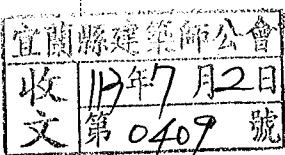 宜蘭縣建築師公會
收文
113年7月2日
第0409號